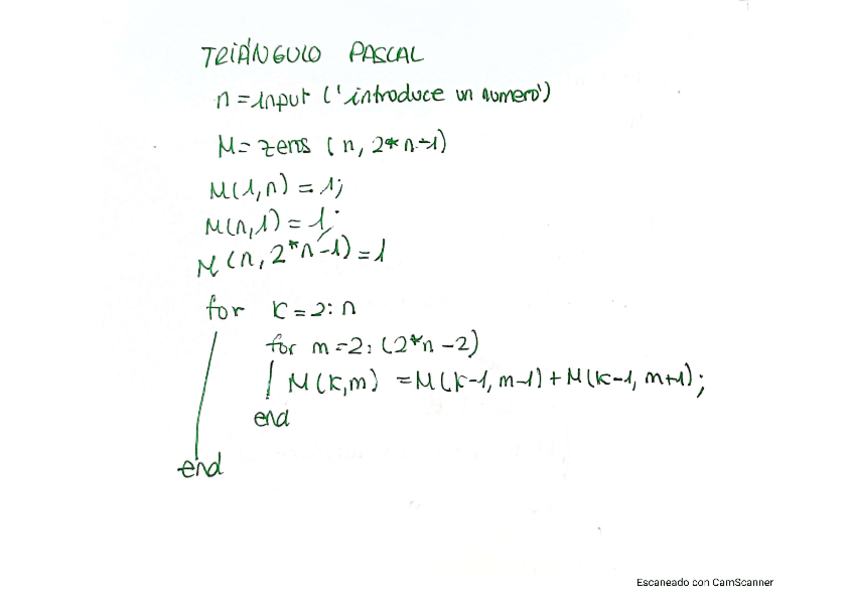 TRIÁNGULO PASCAL
n=input ('introduce un numero')
M= zeros (n, 2*n-1)
M(1,n) = 1;
M(n,1) = 1;
M(n, 2*n-1) = 1
for k=2:n
for m=2:(2*n-2)
M(k,m) = M(k-1, m-1) + M(k-1, m+1);
end
end
Escaneado con CamScanner